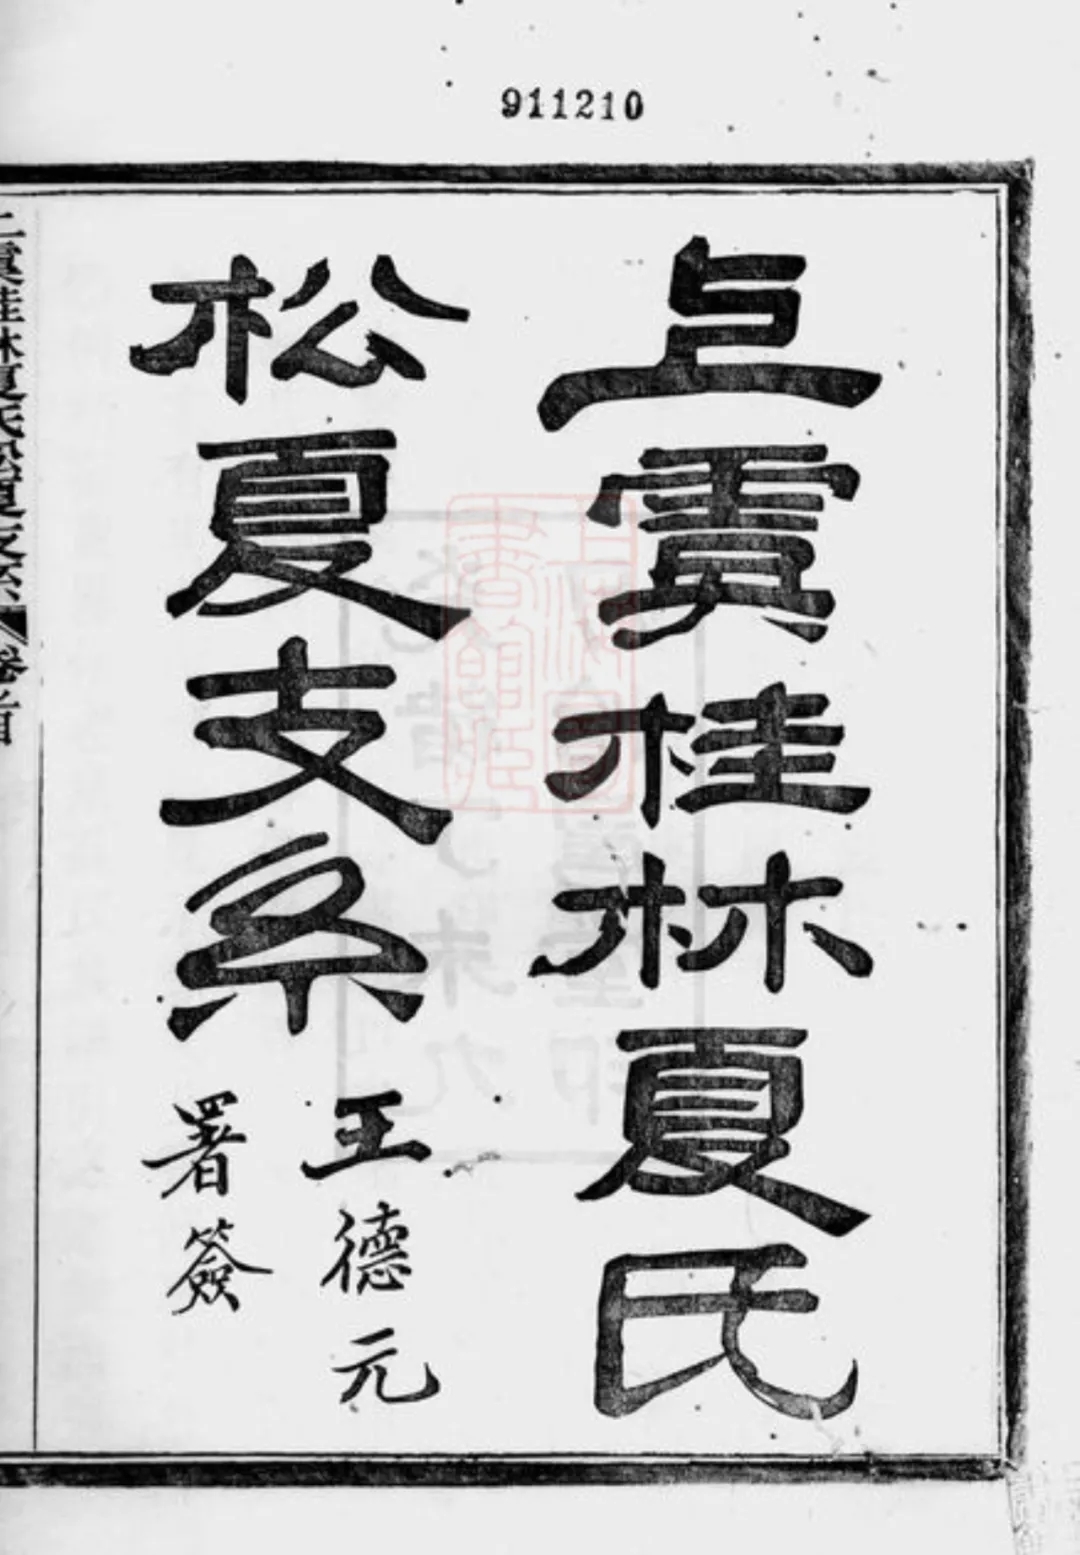 911210
上虞桂林夏氏
松夏支系
王德元
署簽
上虞桂林夏氏松夏支系 卷首